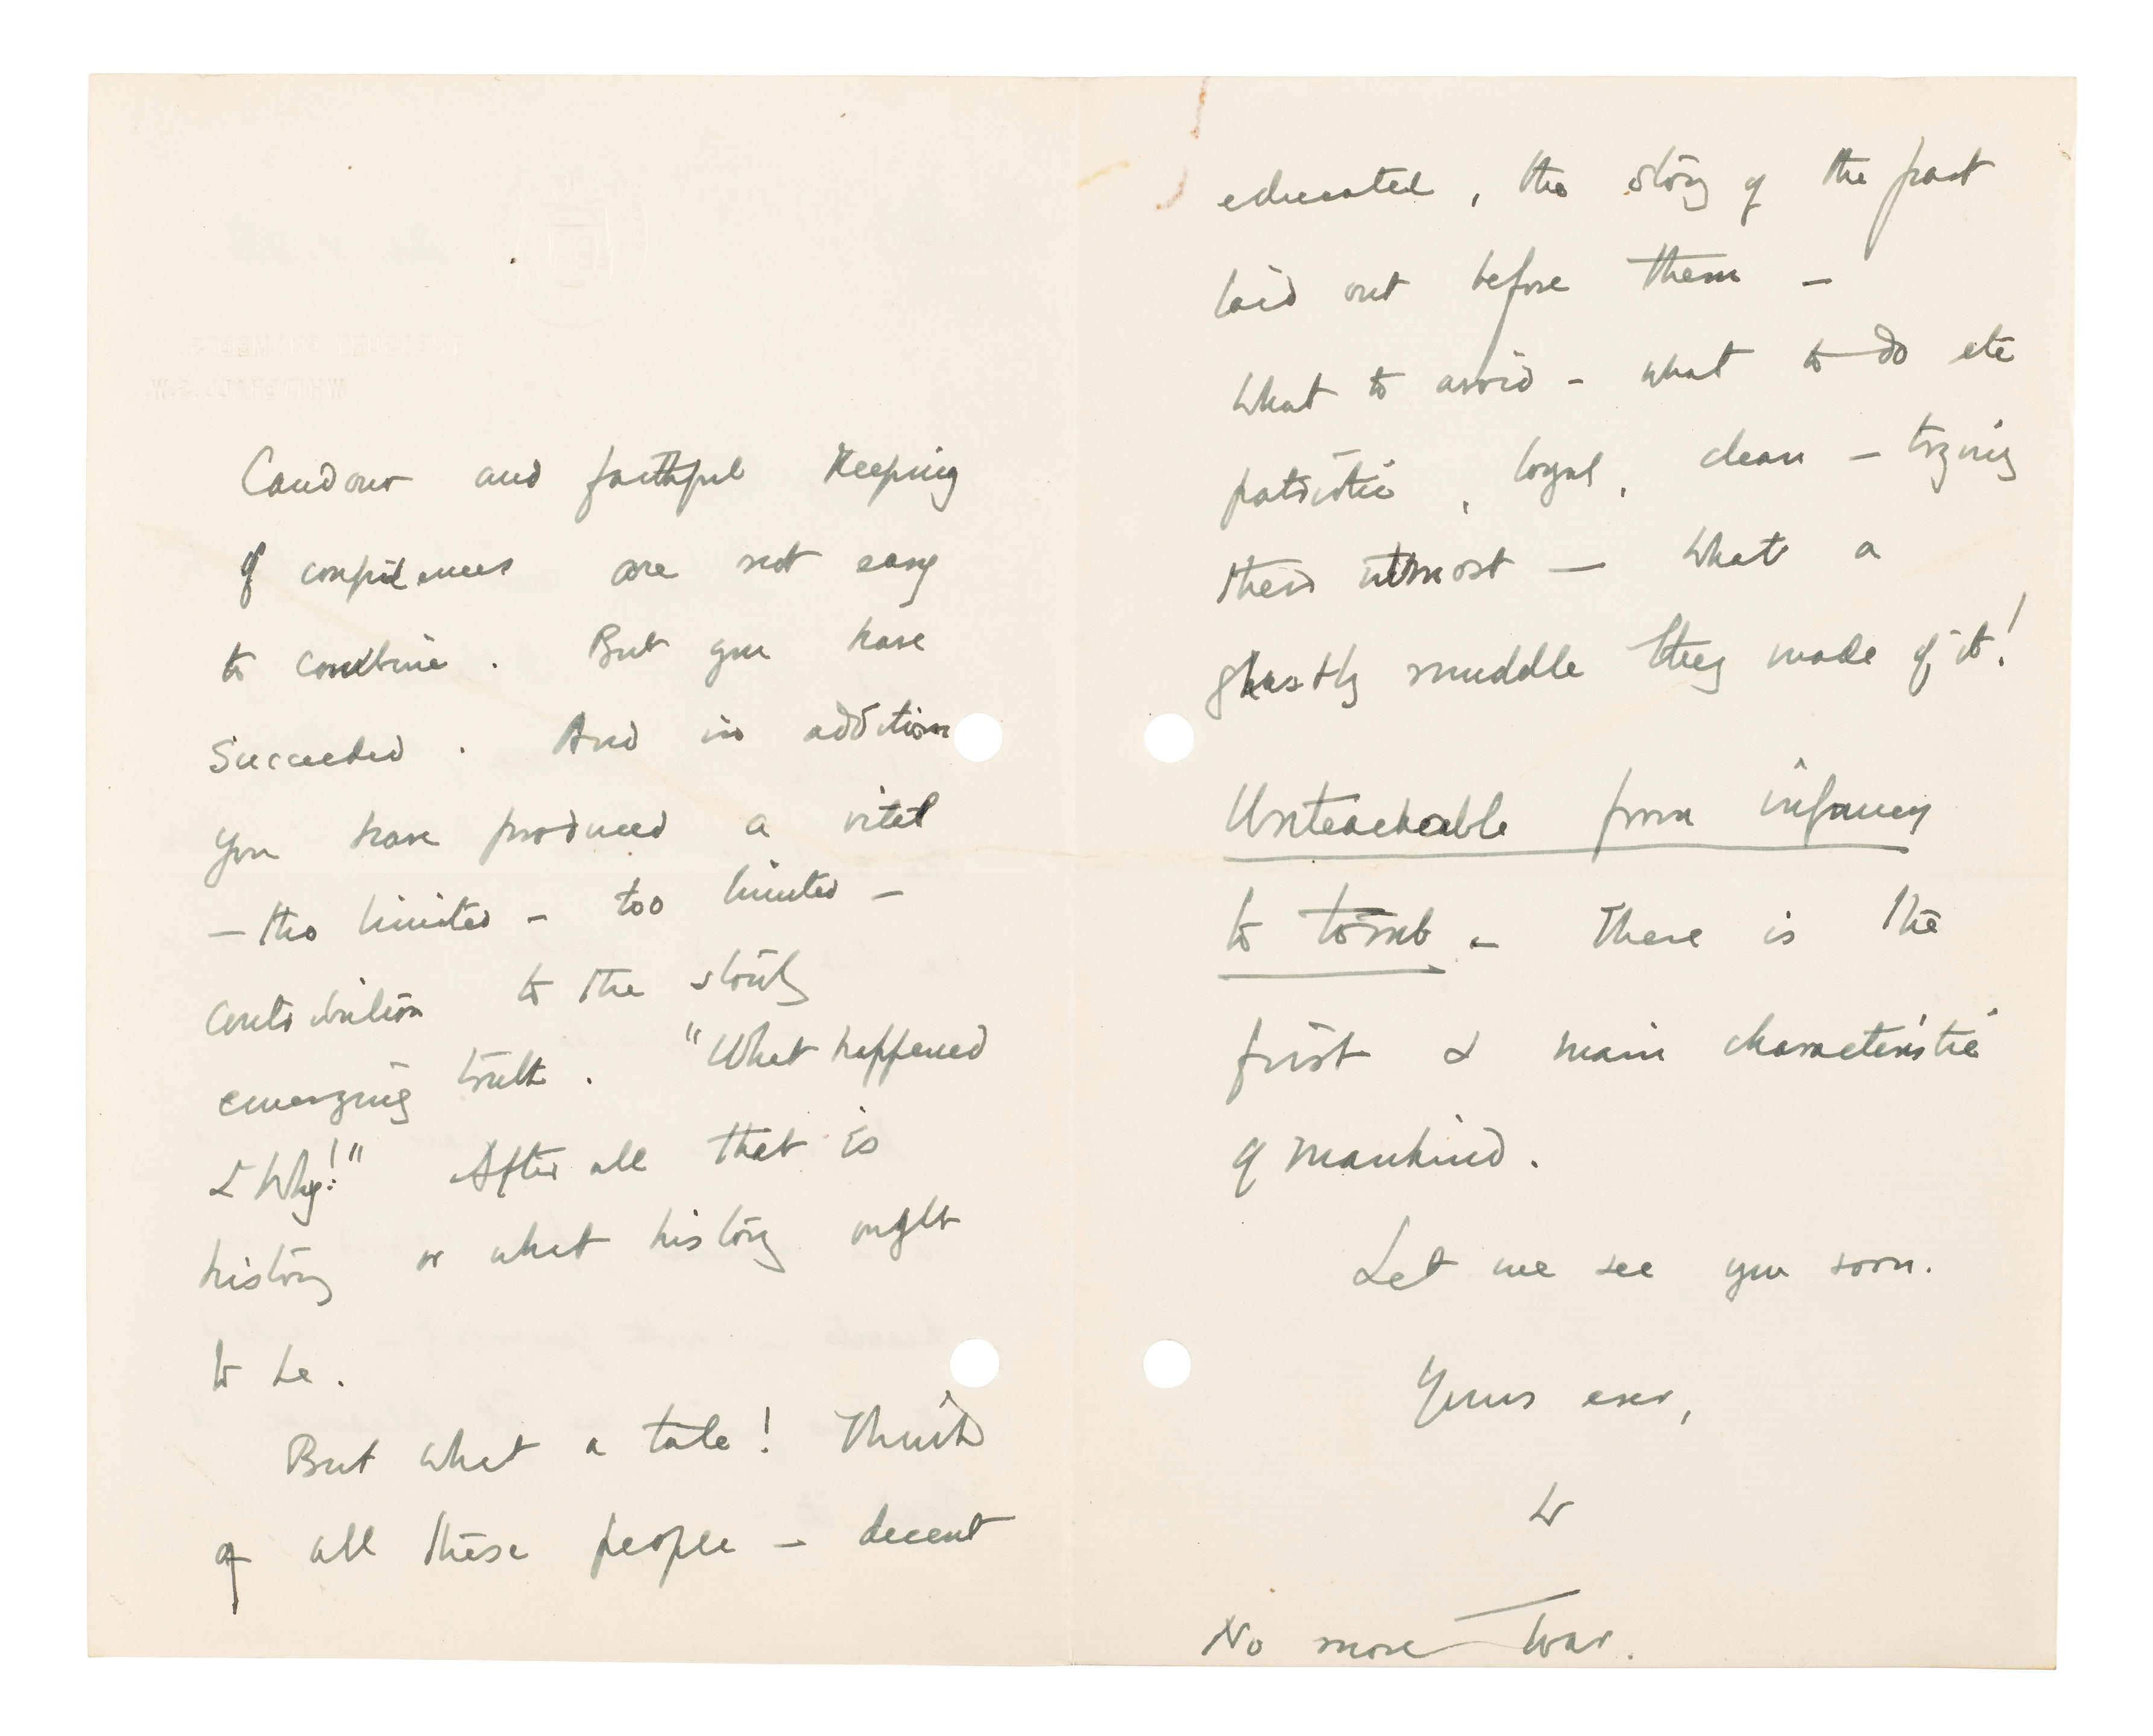 Candour and faithful keeping
of confidences are not easy
to combine. But you have
succeeded. And in addition
you have produced a vital
— tho limited – too limited –
contribution to the slowly
emerging truth. "What happened
& Why!" After all that is
history or what history ought
to be.
But what a tale! Think
of all these people – decent
educated, the story of the past
laid out before them –
What to avoid – what to do etc
patriotic, loyal, clean – trying
their utmost — What a
ghastly muddle they made of it!
Unteachable from infancy
to tomb – There is the
first & main characteristic
of mankind.
Let me see you soon.
Yours ever,
W
No more War.
TREASURY CHAMBERS,
WHITEHALL, S.W.